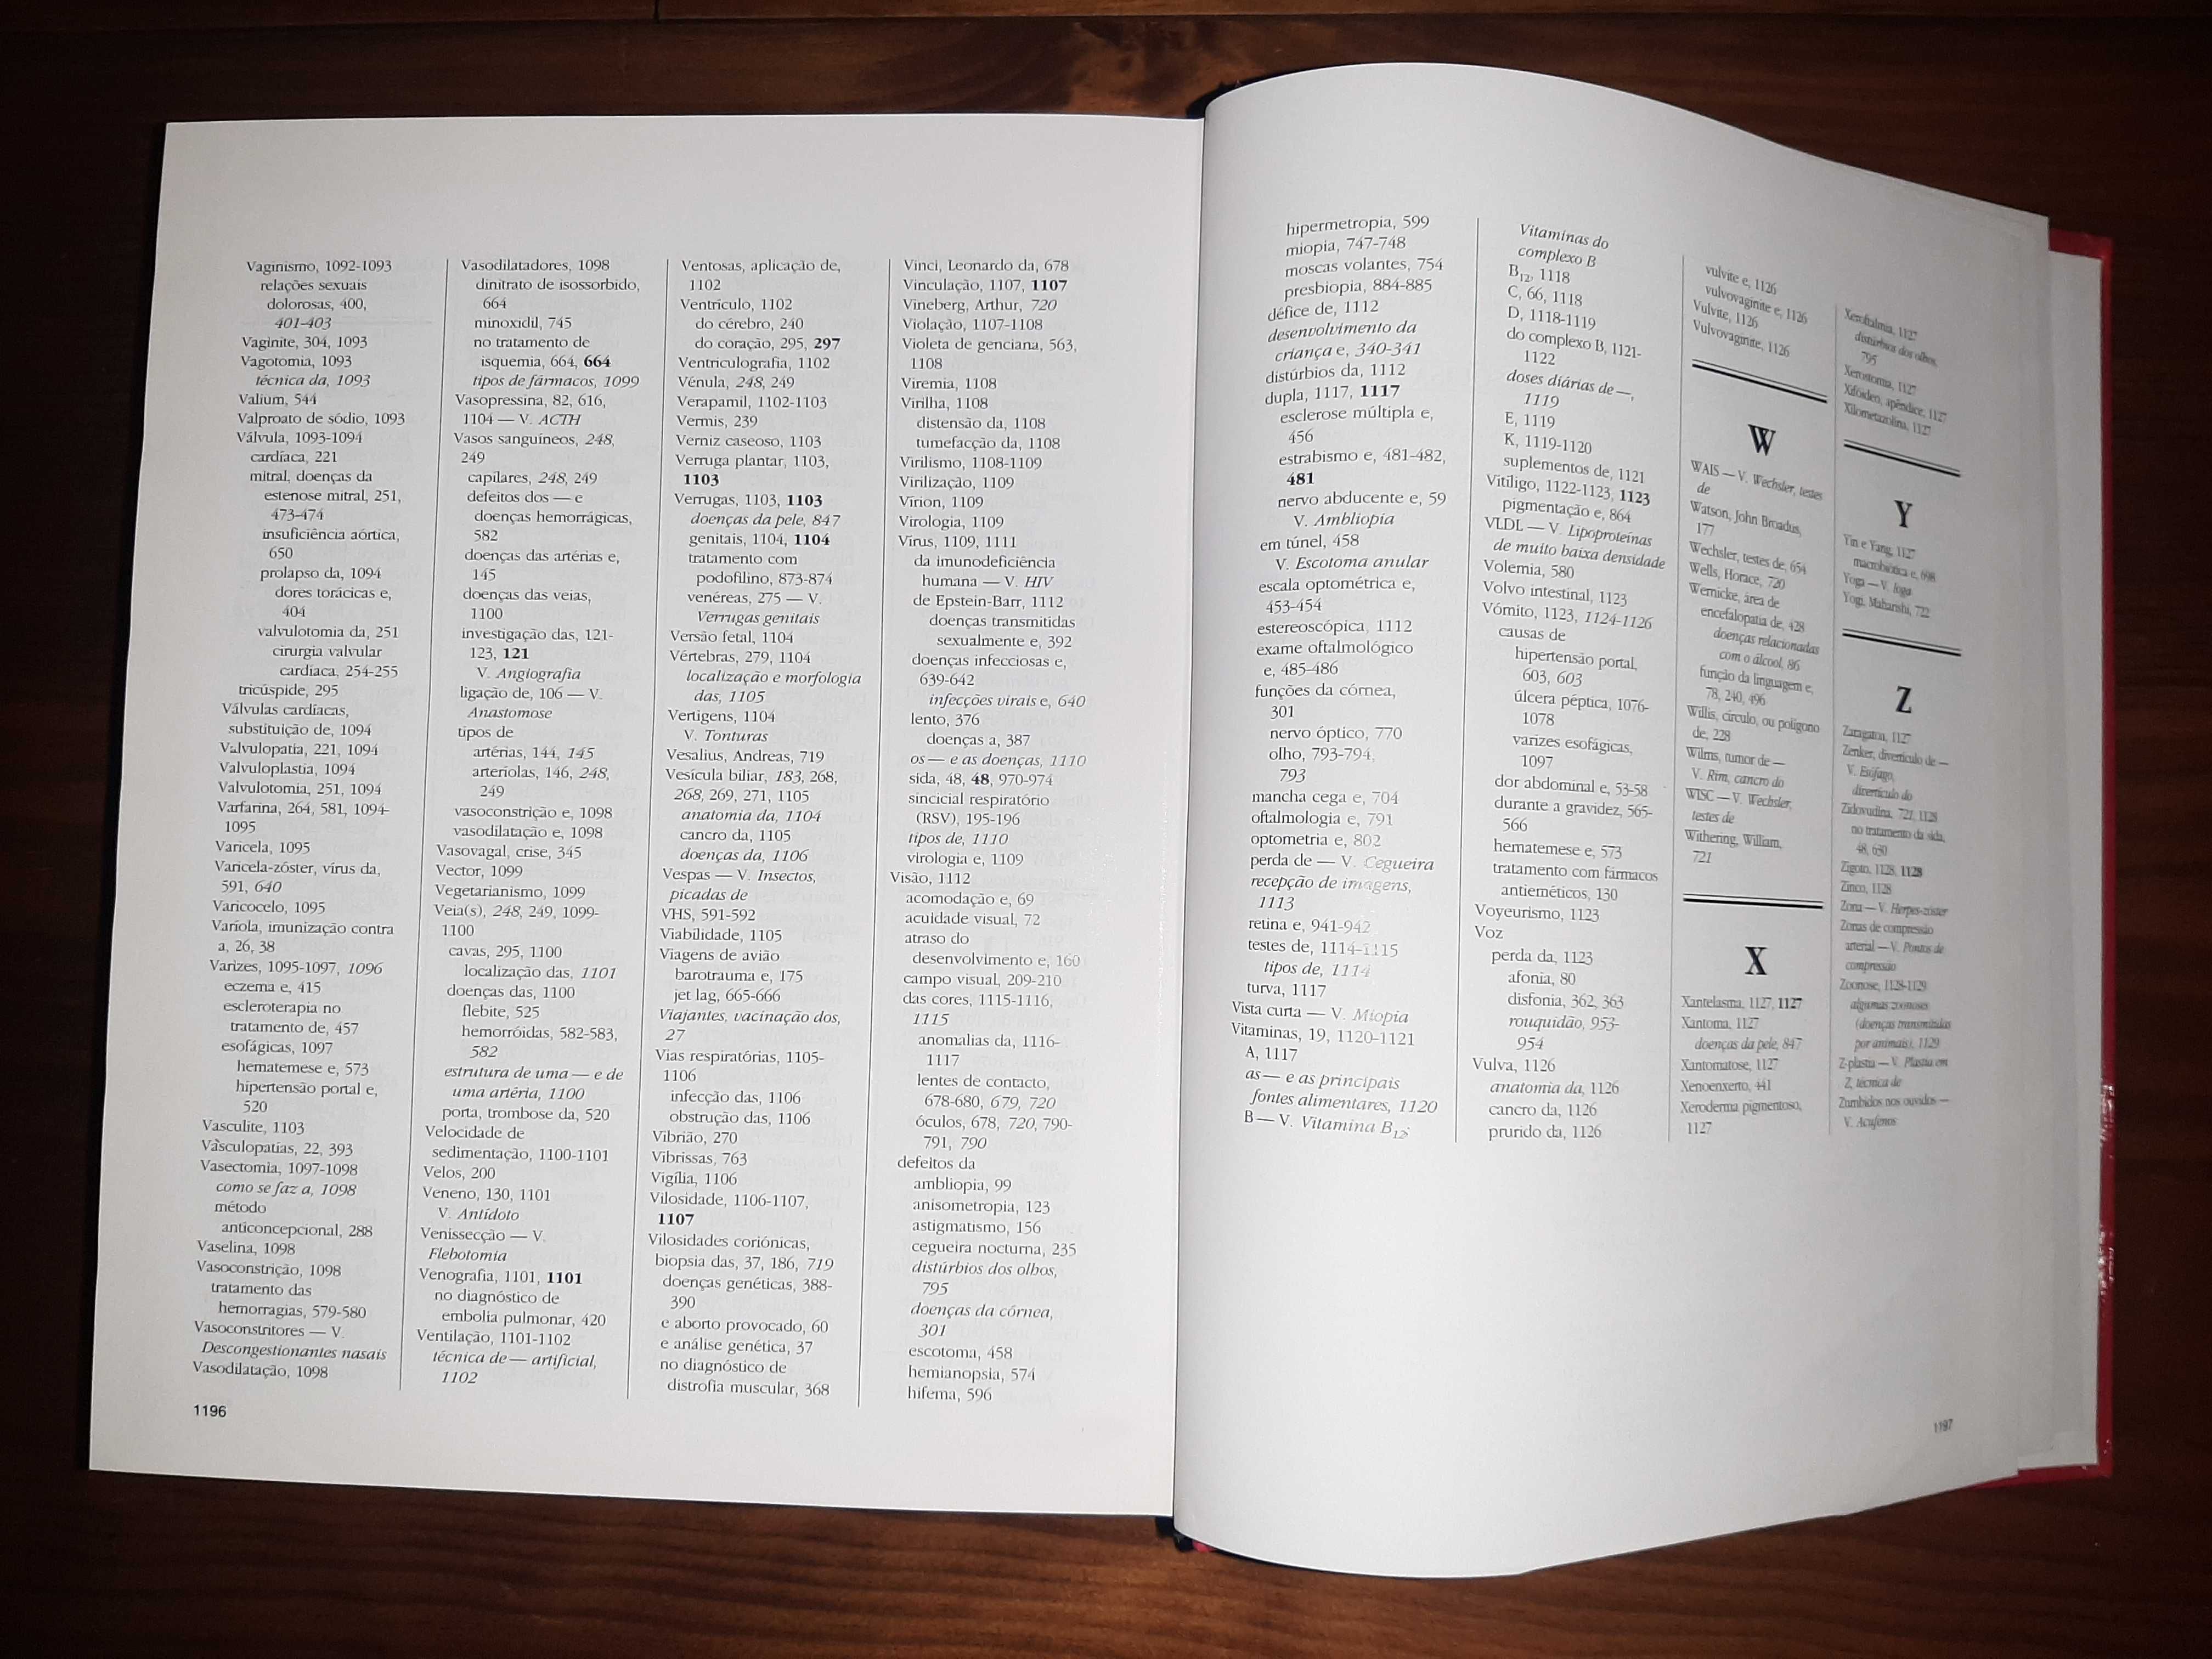 Vaginismo, 1092-1093
relações sexuais
dolorosas, 400,
401-403
Vaginite, 304, 1093
Vagotomia, 1093
técnica da, 1093
Valium, 544
Valproato de sódio, 1093
Válvula, 1093-1094
cardíaca, 221
mitral, doenças da
estenose mitral, 251,
473-474
insuficiência aórtica,
650
prolapso da, 1094
dores torácicas e,
404
valvulotomia da, 251
cirurgia valvular
cardíaca, 254-255
tricúspide, 295
Válvulas cardíacas,
substituição de, 1094
Valvulopatia, 221, 1094
Valvuloplastia, 1094
Valvulotomia, 251, 1094
Varfarina, 264, 581, 1094-
1095
Varicela, 1095
Varicela-zóster, vírus da,
591, 640
Varicocelo, 1095
Varíola, imunização contra
a, 26, 38
Varizes, 1095-1097, 1096
eczema e, 415
escleroterapia no
tratamento de, 457
esofágicas, 1097
hematemese e, 573
hipertensão portal e,
520
Vasculite, 1103
Vasculopatias, 22, 393
Vasectomia, 1097-1098
como se faz a, 1098
método
anticoncepcional, 288
Vaselina, 1098
Vasoconstrição, 1098
tratamento das
hemorragias, 579-580
Vasoconstritores — V.
Descongestionantes nasais
Vasodilatação, 1098
Vasodilatadores, 1098
dinitrato de isossorbido,
664
minoxidil, 745
no tratamento de
isquemia, 664, 664
tipos de fármacos, 1099
Vasopressina, 82, 616,
1104 — V. ACTH
Vasos sanguíneos, 248,
249
capilares, 248, 249
defeitos dos — e
doenças hemorrágicas,
582
doenças das artérias e,
145
doenças das veias,
1100
investigação das, 121-
123, 121
V. Angiografia
ligação de, 106 — V.
Anastomose
tipos de
artérias, 144, 145
arteríolas, 146, 248,
249
vasoconstrição e, 1098
vasodilatação e, 1098
Vasovagal, crise, 345
Vector, 1099
Vegetarianismo, 1099
Veia(s), 248, 249, 1099-
1100
cavas, 295, 1100
localização das, 1101
doenças das, 1100
flebite, 525
hemorróidas, 582-583,
582
estrutura de uma — e de
uma artéria, 1100
porta, trombose da, 520
Velocidade de
sedimentação, 1100-1101
Velos, 200
Veneno, 130, 1101
V. Antídoto
Venissecção — V.
Flebotomia
Venografia, 1101, 1101
no diagnóstico de
embolia pulmonar, 420
Ventilação, 1101-1102
técnica de — artificial,
1102
Ventosas, aplicação de,
1102
Ventrículo, 1102
do cérebro, 240
do coração, 295, 297
Ventriculografia, 1102
Vénula, 248, 249
Verapamil, 1102-1103
Vermis, 239
Verniz caseoso, 1103
Verruga plantar, 1103,
1103
Verrugas, 1103, 1103
doenças da pele, 847
genitais, 1104, 1104
tratamento com
podofilino, 873-874
venéreas, 275 — V.
Verrugas genitais
Versão fetal, 1104
Vértebras, 279, 1104
localização e morfologia
das, 1105
Vertigens, 1104
V. Tonturas
Vesalius, Andreas, 719
Vesícula biliar, 183, 268,
268, 269, 271, 1105
anatomia da, 1104
cancro da, 1105
doenças da, 1106
Vespas — V. Insectos,
picadas de
VHS, 591-592
Viabilidade, 1105
Viagens de avião
barotrauma e, 175
jet lag, 665-666
Viajantes, vacinação dos,
27
Vias respiratórias, 1105-
1106
infecção das, 1106
obstrução das, 1106
Vibrião, 270
Vibrissas, 763
Vigília, 1106
Vilosidade, 1106-1107,
1107
Vilosidades coriónicas,
biopsia das, 37, 186, 719
doenças genéticas, 388-
390
e aborto provocado, 60
e análise genética, 37
no diagnóstico de
distrofia muscular, 368
Vinci, Leonardo da, 678
Vinculação, 1107, 1107
Vineberg, Arthur, 720
Violação, 1107-1108
Violeta de genciana, 563,
1108
Viremia, 1108
Virilha, 1108
distensão da, 1108
tumefacção da, 1108
Virilismo, 1108-1109
Virilização, 1109
Vírion, 1109
Virologia, 1109
Vírus, 1109, 1111
da imunodeficiência
humana — V. HIV
de Epstein-Barr, 1112
doenças transmitidas
sexualmente e, 392
doenças infecciosas e,
639-642
infecções virais e, 640
lento, 376
doenças a, 387
os — e as doenças, 1110
sida, 48, 48, 970-974
sincicial respiratório
(RSV), 195-196
tipos de, 1110
virologia e, 1109
Visão, 1112
acomodação e, 69
acuidade visual, 72
atraso do
desenvolvimento e, 160
campo visual, 209-210
das cores, 1115-1116,
1115
anomalias da, 1116-
1117
lentes de contacto,
678-680, 679, 720
óculos, 678, 720, 790-
791, 790
defeitos da
ambliopia, 99
anisometropia, 123
astigmatismo, 156
cegueira nocturna, 235
distúrbios dos olhos,
795
doenças da córnea,
301
escotoma, 458
hemianopsia, 574
hifema, 596
1196
hipermetropia, 599
miopia, 747-748
moscas volantes, 754
presbiopia, 884-885
défice de, 1112
desenvolvimento da
criança e, 340-341
distúrbios da, 1112
dupla, 1117, 1117
esclerose múltipla e,
456
estrabismo e, 481-482,
481
nervo abducente e, 59
V. Ambliopia
em túnel, 458
V. Escotoma anular
escala optométrica e,
453-454
estereoscópica, 1112
exame oftalmológico
e, 485-486
funções da córnea,
301
nervo óptico, 770
olho, 793-794,
793
mancha cega e, 704
oftalmologia e, 791
optometria e, 802
perda de — V. Cegueira
recepção de imagens,
1113
retina e, 941-942
testes de, 1114-1115
tipos de, 1114
turva, 1117
Vista curta — V. Miopia
Vitaminas, 19, 1120-1121
A, 1117
as — e as principais
fontes alimentares, 1120
B — V. Vitamina B12;
Vitaminas do
complexo B
B12, 1118
C, 66, 1118
D, 1118-1119
do complexo B, 1121-
1122
doses diárias de —,
1119
E, 1119
K, 1119-1120
suplementos de, 1121
Vitíligo, 1122-1123, 1123
pigmentação e, 864
VLDL — V. Lipoproteínas
de muito baixa densidade
Volemia, 580
Volvo intestinal, 1123
Vómito, 1123, 1124-1126
causas de
hipertensão portal,
603, 603
úlcera péptica, 1076-
1078
varizes esofágicas,
1097
dor abdominal e, 53-58
durante a gravidez, 565-
566
hematemese e, 573
tratamento com fármacos
antieméticos, 130
Voyeurismo, 1123
Voz
perda da, 1123
afonia, 80
disfonia, 362, 363
rouquidão, 953-
954
Vulva, 1126
anatomia da, 1126
cancro da, 1126
prurido da, 1126
vulvite e, 1126
vulvovaginite e, 1126
Vulvite, 1126
Vulvovaginite, 1126
W
WAIS — V. Wechsler, testes
de
Watson, John Broadus,
177
Wechsler, testes de, 654
Wells, Horace, 720
Wernicke, área de
encefalopatia de, 428
doenças relacionadas
com o álcool, 86
função da linguagem e,
78, 240, 496
Willis, círculo, ou polígono
de, 228
Wilms, tumor de —
V. Rim, cancro do
WISC — V. Wechsler,
testes de
Withering, William,
721
X
Xantelasma, 1127, 1127
Xantoma, 1127
doenças da pele, 847
Xantomatose, 1127
Xenoenxerto, 441
Xeroderma pigmentoso,
1127
Xeroftalmia, 1127
distúrbios dos olhos,
795
Xerostomia, 1127
Xifóideo, apêndice, 1127
Xilometazolina, 1127
Y
Yin e Yang, 1127
macrobiótica e, 698
Yoga — V. Ioga
Yogi, Maharishi, 722
Z
Zaragatoa, 1127
Zenker, divertículo de —
V. Esófago,
divertículo do
Zidovudina, 721, 1128
no tratamento da sida,
48, 630
Zigoto, 1128, 1128
Zinco, 1128
Zona — V. Herpes-zóster
Zonas de compressão
arterial — V. Pontos de
compressão
Zoonose, 1128-1129
algumas zoonoses
(doenças transmitidas
por animais), 1129
Z-plastia — V. Plastia em
Z, técnica de
Zumbidos nos ouvidos —
V. Acufenos
1197